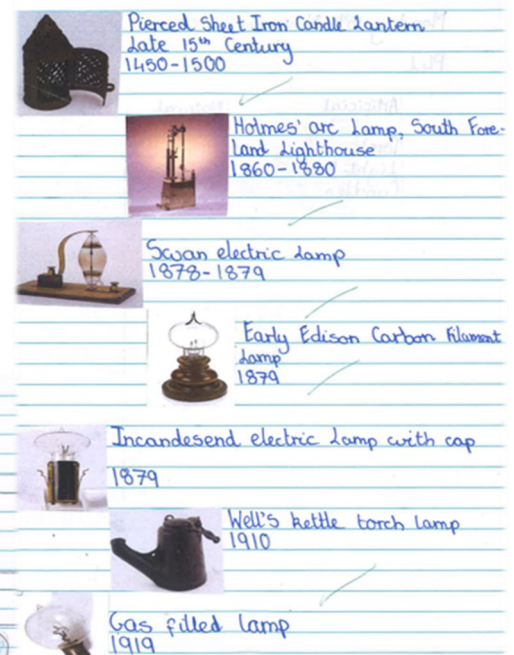 Pierced Sheet Iron Candle Lantern
Late 15th Century
1450-1500
Holmes' arc Lamp, South Fore-
land Lighthouse
1860-1880
Swan electric Lamp
1878-1879
Early Edison Carbon Filament
Lamp
1879
Incandesend electric Lamp with cap
1879
Well's kettle torch lamp
1910
Gas filled lamp
1919